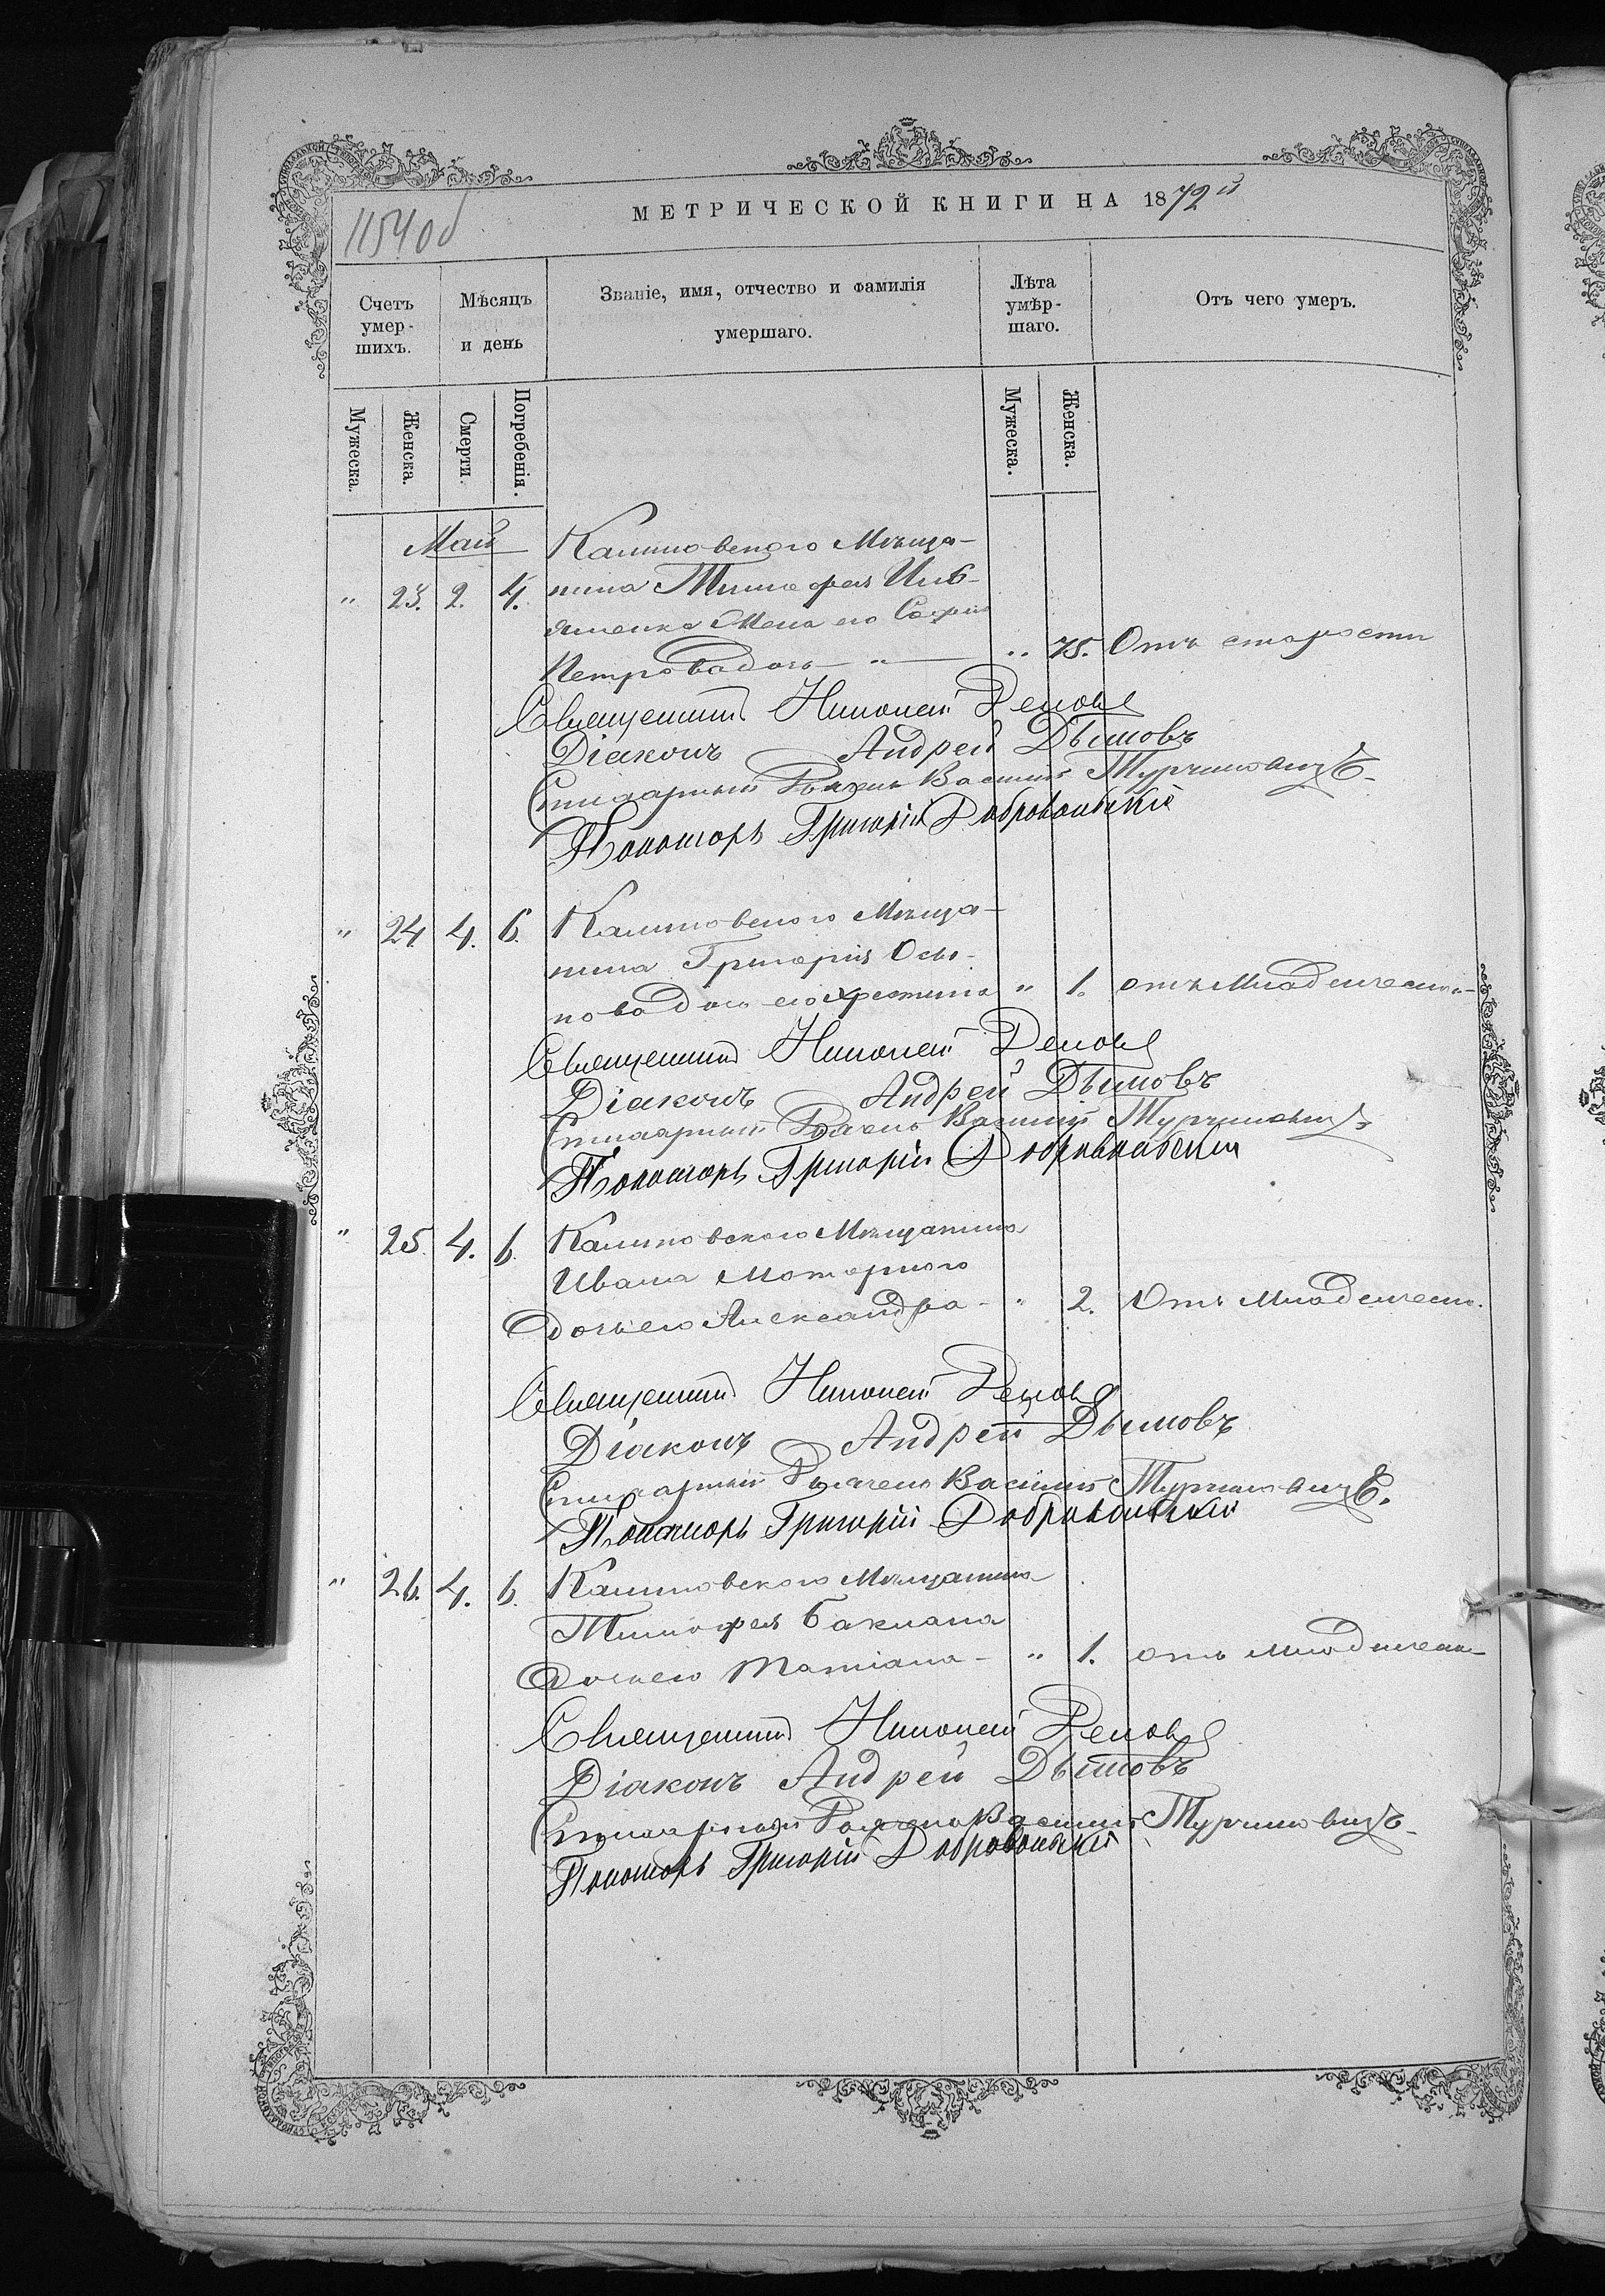 МЕТРИЧЕСКОЙ КНИГИ НА 1872й
1154 об
Счетъ умер-шихъ.
Мѣсяцъ и день
Званіе, имя, отчество и фамилія умершаго.
Лѣта умѣр-шаго.
Отъ чего умеръ.
Мужеска. Женска. Смерти. Погребенія. Мужеска. Женска.
Май Калиновского Мѣща-
" 23. 2. 4. нина Тимофея
Жена его Софія
Петрова дочь — " — " 75. Отъ старости
Священникъ Николай
Діаконъ Андрей Дымовъ
Василій Турчиновичъ
Пономарь Григорій Добровольскій
" 24 4. 6. Калиновского Мѣща-
нина Григорія Оси-
пова дочь его Христина " 1. отъ Младенчест-
Священникъ Николай
Діаконъ Андрей Дымовъ
Василій Турчиновичъ
Пономарь Григорій Добровольскій
" 25. 4. 6. Калиновского Мѣщанина
Ивана Моторного
дочь его Александра - " 2. Отъ Младенчест.
Священникъ Николай
Діаконъ Андрей Дымовъ
Василій Турчиновичъ.
Пономарь Григорій Добровольскій
" 26. 4. 6. Калиновского Мѣщанина
Тимофея Баклана
дочь его Татіана - " 1. отъ младенчест-
Священникъ Николай
Діаконъ Андрей Дымовъ
Василій Турчиновичъ
Пономарь Григорій Добровольскій